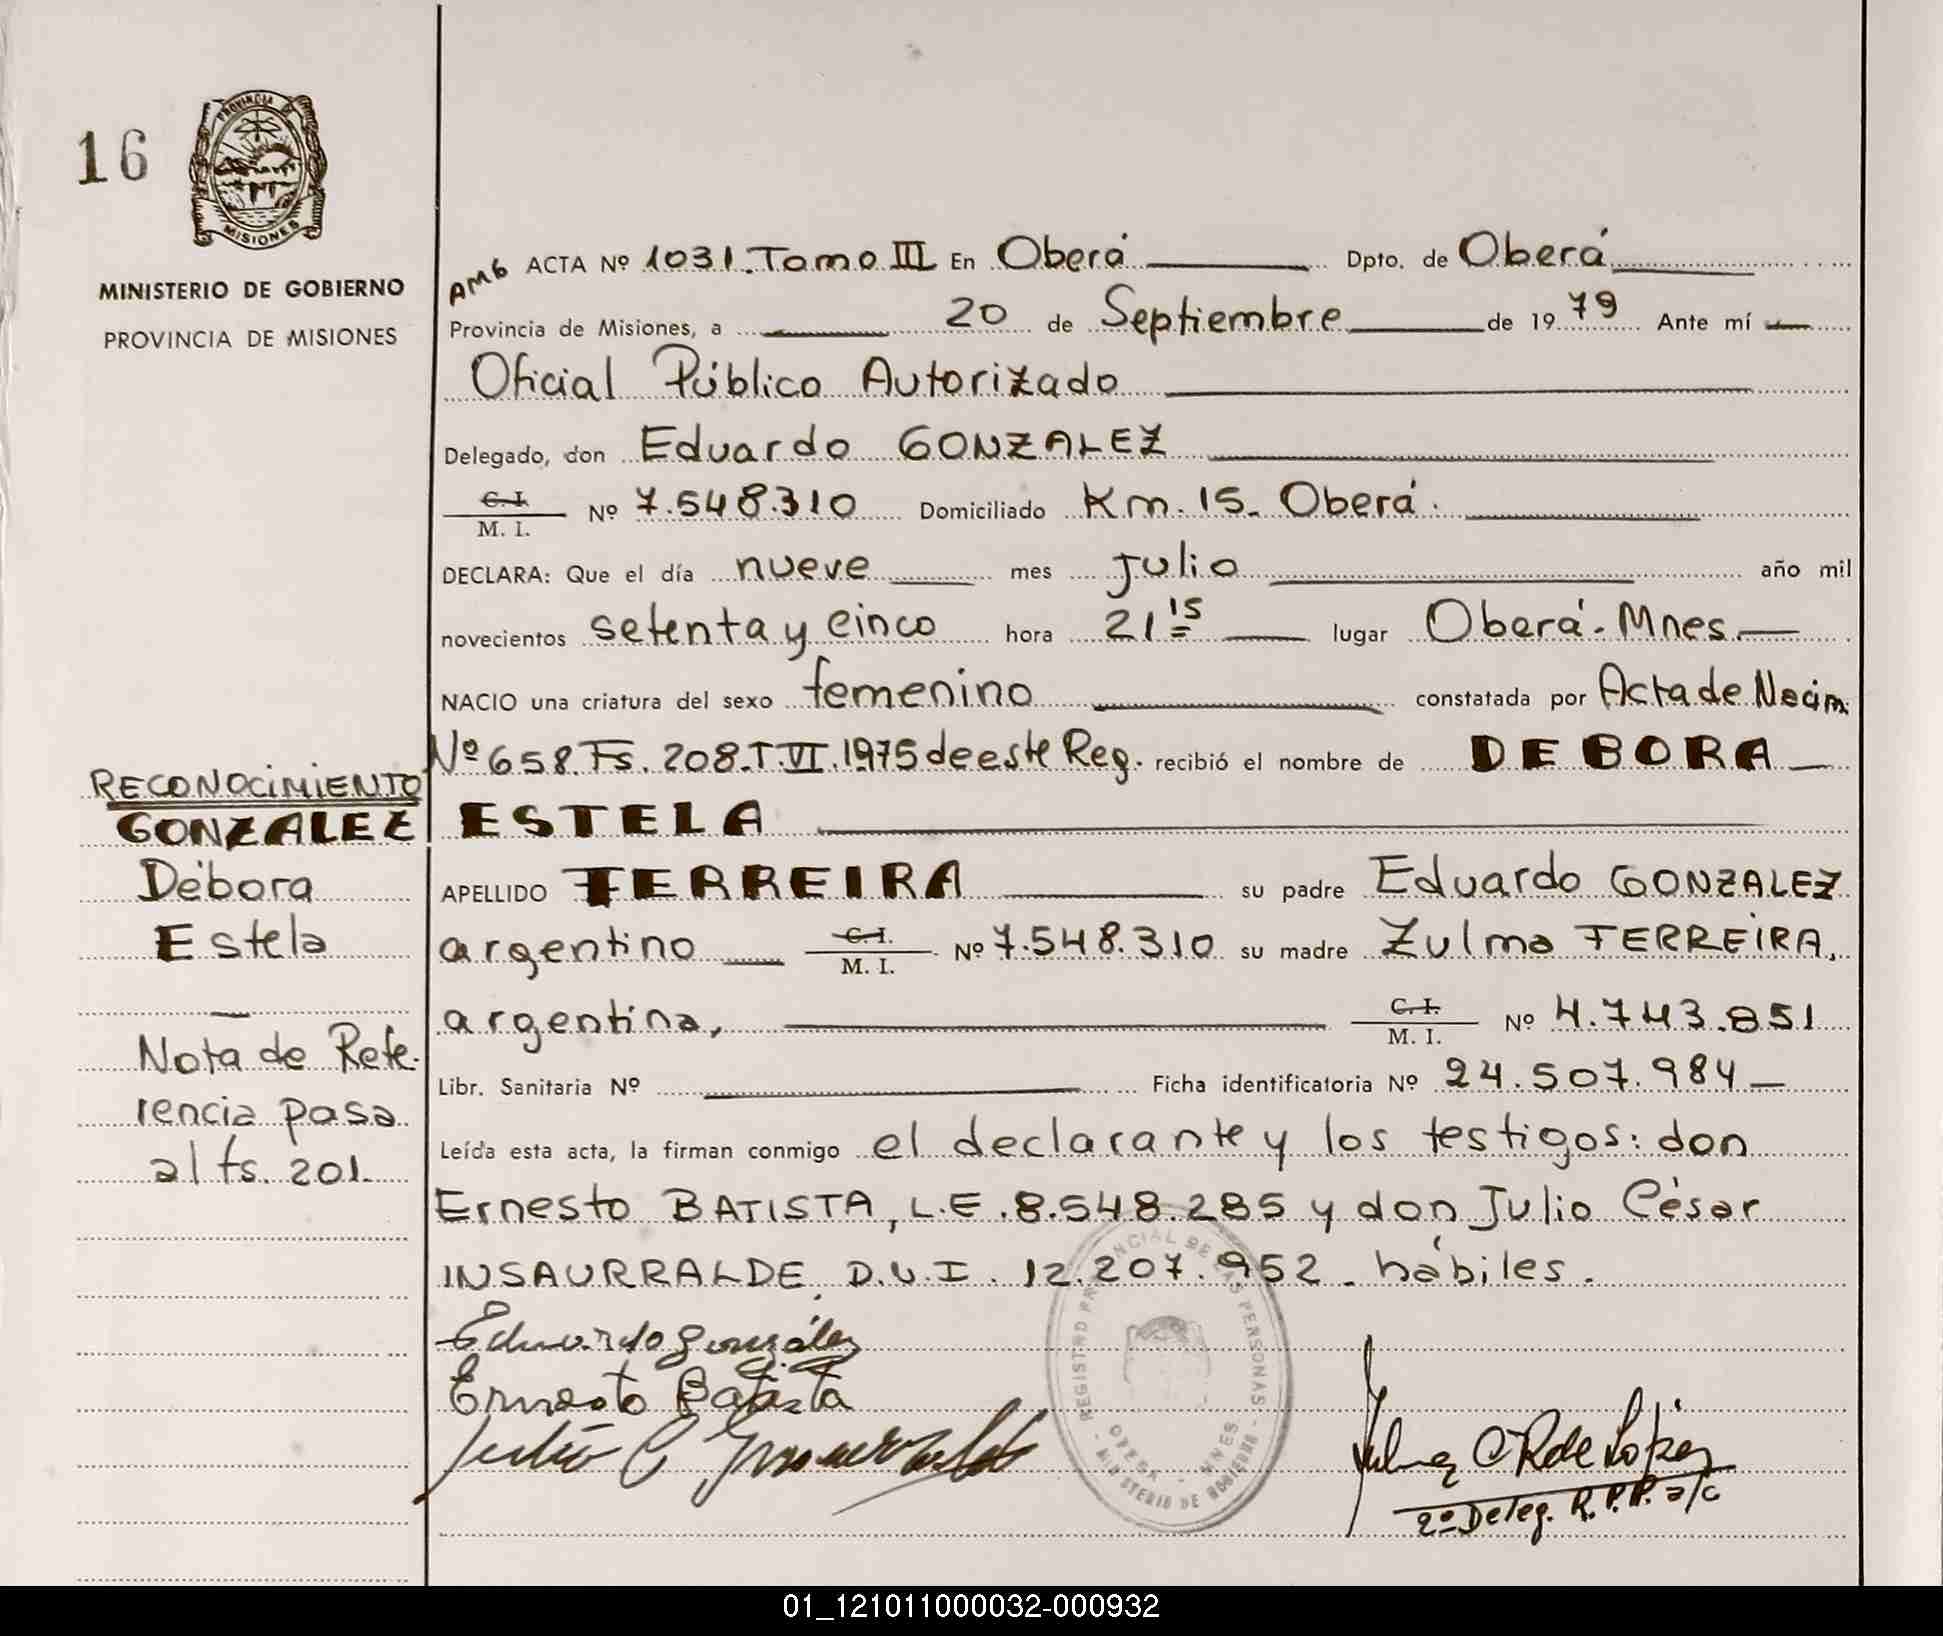 16
PROVINCIA
MISIONES
MINISTERIO DE GOBIERNO
PROVINCIA DE MISIONES
AMG ACTA Nº 1031. Tomo III En Oberá Dpto. de Oberá
Provincia de Misiones, a 20 de Septiembre de 1979 Ante mí
Oficial Público Autorizado
Delegado, don Eduardo GONZALEZ
C. I.
M. I. Nº 7.548.310 Domiciliado Km. 15. Oberá.
DECLARA: Que el día nueve mes Julio año mil
novecientos setenta y cinco hora 21 15 lugar Oberá. Mnes.
NACIO una criatura del sexo femenino constatada por Acta de Nacim.
Nº 658. Fs. 208. T. VI. 1975 de este Reg. recibió el nombre de DEBORA
ESTELA
APELLIDO FERREIRA su padre Eduardo GONZALEZ
argentino C. I. M. I. Nº 7.548.310 su madre Zulma FERREIRA,
argentina, C. I. M. I. Nº 4.743.851
Libr. Sanitaria Nº Ficha identificatoria Nº 24.507.984
Leída esta acta, la firman conmigo el declarante y los testigos: don
Ernesto BATISTA, L.E. 8.548.285 y don Julio César
INSAURRALDE, D.U.I. 12.207.952. hábiles.
RECONOCIMIENTO
GONZALEZ
Débora
Estela
Nota de Refe-
rencia pasa
al fs. 201.
Eduardo González
Ernesto Batista
Julio C Insaurralde
REGISTRO PROVINCIAL DE LAS PERSONAS
MINISTERIO DE GOBIERNO
OBERA - MNES
C R de López
2º Deleg. R.P.P. a/c
01_121011000032-000932